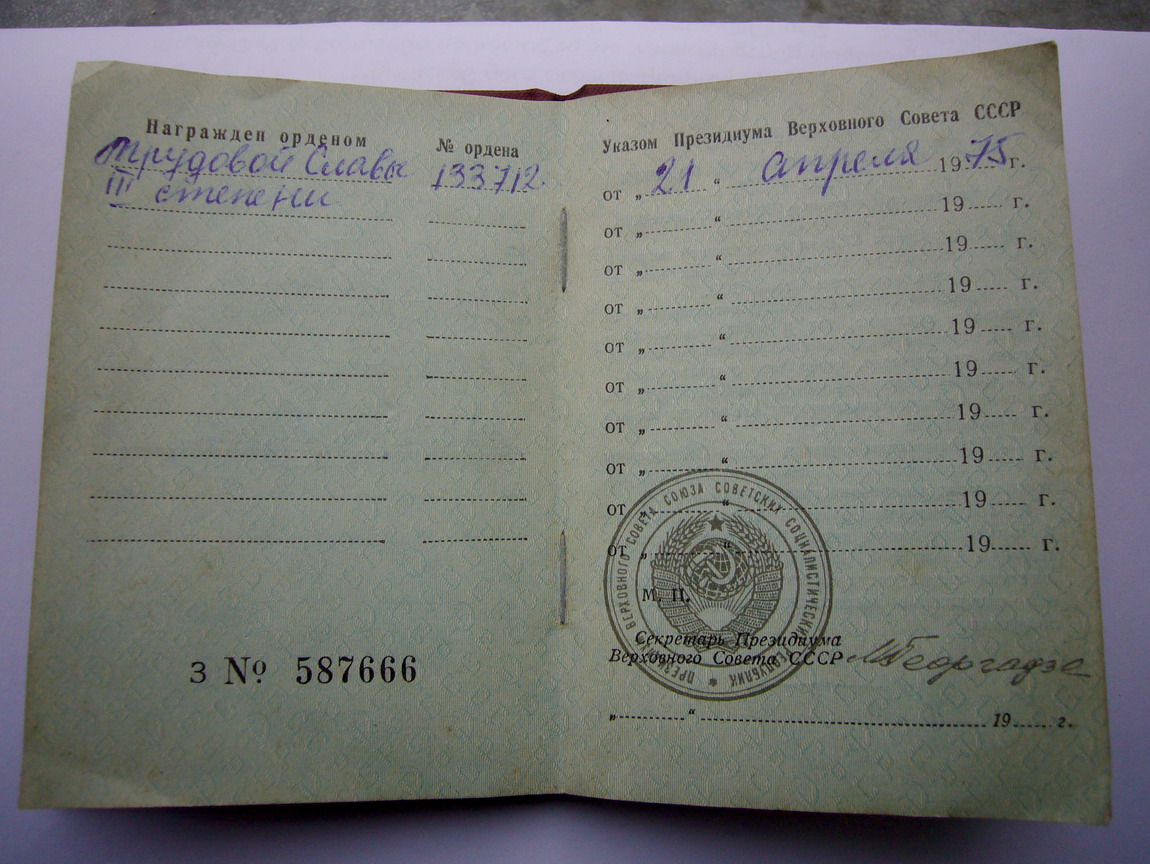 Награжден орденом
№ ордена
Трудовой Славы
133712.
III степени
З № 587666
Указом Президиума Верховного Совета СССР
от „ 21 “ апреля 1975 г.
от „ “ 19 г.
от „ “ 19 г.
от „ “ 19 г.
от „ “ 19 г.
от „ “ 19 г.
от „ “ 19 г.
от „ “ 19 г.
от „ “ 19 г.
от „ “ 19 г.
ВЕРХОВНОГО СОВЕТА СОЮЗА СОВЕТСКИХ СОЦИАЛИСТИЧЕСКИХ
М. П.
Секретарь Президиума
Верховного Совета СССР
М Георгадзе
„ “ 19 г.